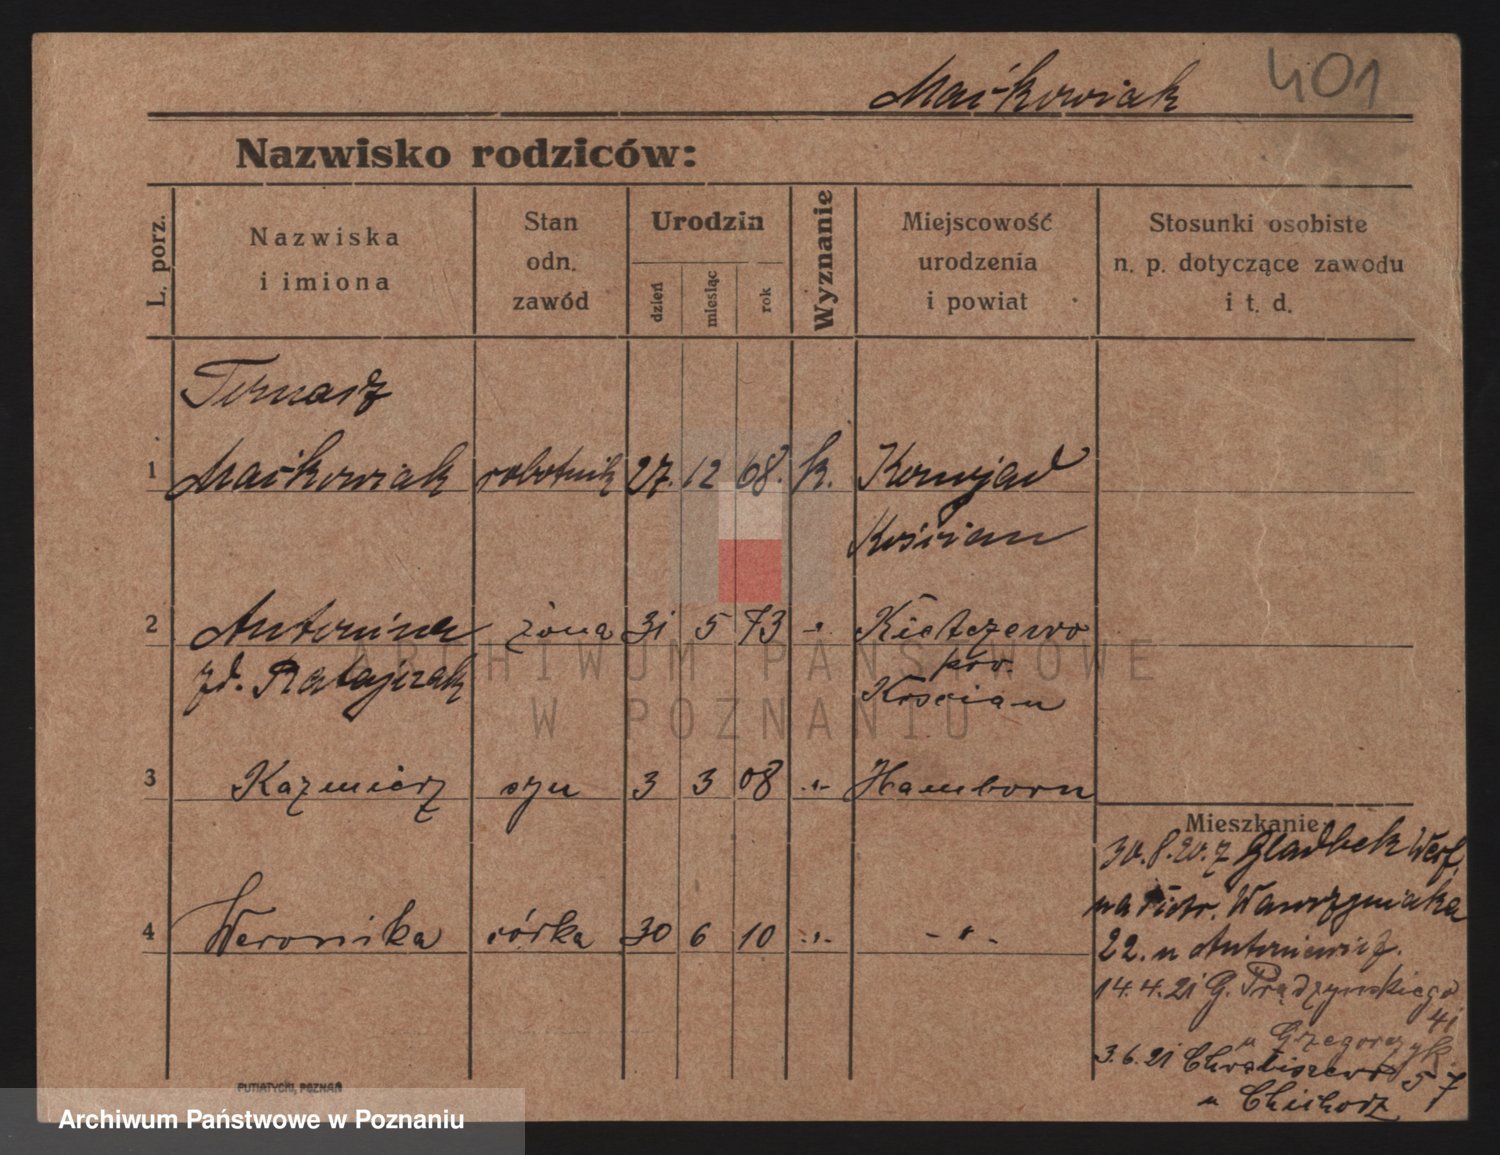 Maćkowiak 401
Nazwisko rodziców:
L. porz.
Nazwiska
i imiona
Stan
odn.
zawód
Urodzin
dzień
miesiąc
rok
Wyznanie
Miejscowość
urodzenia
i powiat
Stosunki osobiste
n. p. dotyczące zawodu
i t. d.
Tomasz
1 Maćkowiak robotnik 27. 12 68. k.
Kościan
2 Antonina żona 31 5 73 -"-
zd. Ratajczak pow.
Kościan
3 Kazmierz syn 3 3 08 -"- Hamborn
4 Weronika córka 30 6 10 -"- -"-
Mieszkanie
30.8.20. z Gladbek Westf.
na Piotr. Wawrzyniaka
22. u Antoniewicz.
14.4.21 G. Prądzyńskiego
41
u Grzegorczyk
3.6.21 Chwaliszewo 57
u
PUTIATYCKI, POZNAŃ
ARCHIWUM PAŃSTWOWE
W POZNANIU
Archiwum Państwowe w Poznaniu